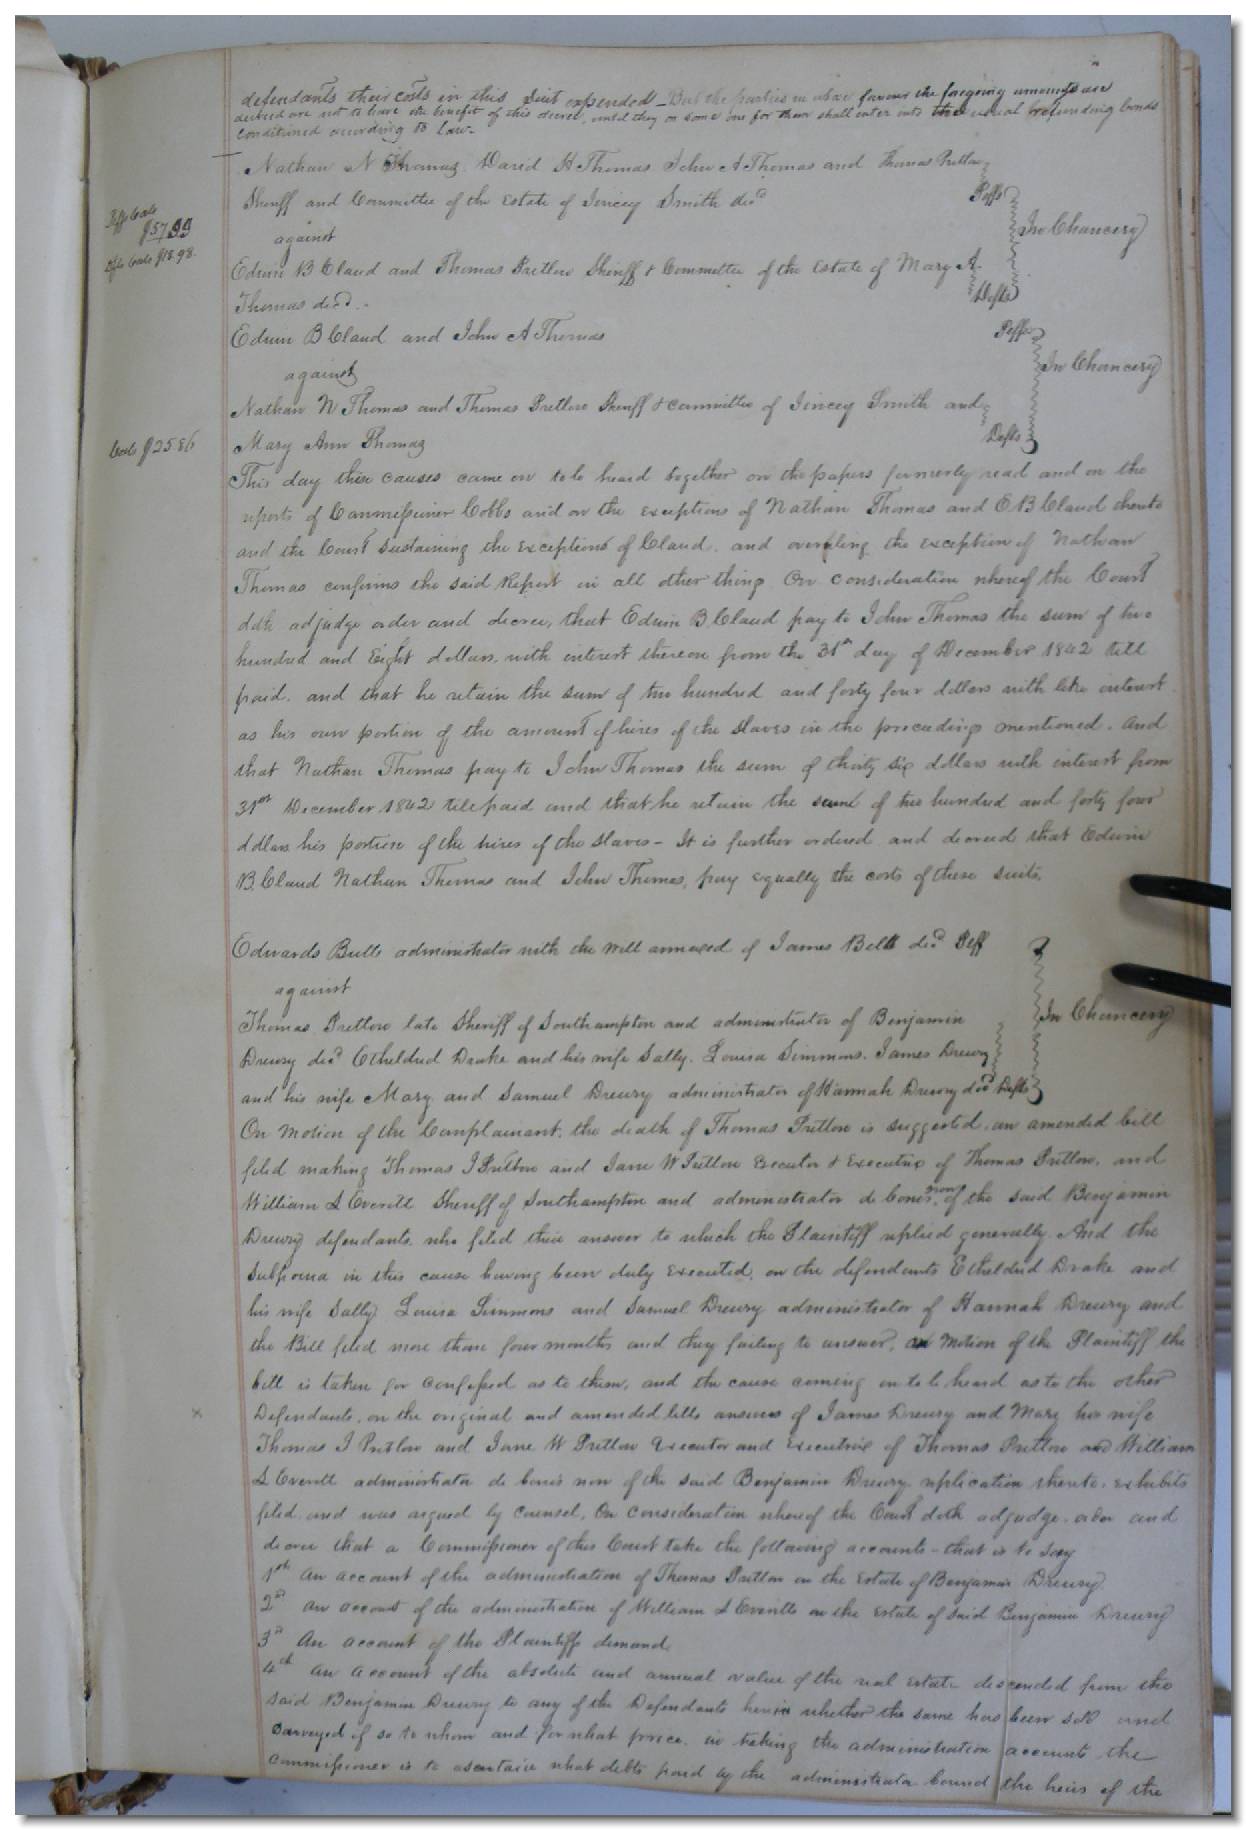 defendants their costs in this suit expended – But the parties in whose favour the foregoing amounts are
decreed are not to have the benefit of this decree, until they or some one for them shall enter into the usual refunding bonds
conditioned according to law –
Nathan N Thomas, David H Thomas John A Thomas and Thomas Pretlow
Sheriff and Committee of the Estate of Jincey Smith decd Plffs
against In Chancery
Edwin B Claud and Thomas Pretlow Sheriff & Committee of the Estate of Mary A.
Thomas decd. Defts
Plffs Costs
$57.99
Defts Costs $18.98.
Edwin B Claud and John A Thomas Plffs
against In Chancery
Nathan N Thomas and Thomas Pretlow Sheriff & Committee of Jincey Smith and
Mary Ann Thomas Defts
Costs $25.86
This day these causes came on to be heard together on the papers formerly read and on the
reports of Commissioner Cobbs and on the exceptions of Nathan Thomas and E B Claud thereto
and the Court sustaining the exceptions of Claud, and overruling the exception of Nathan
Thomas confirms the said Report in all other things. On consideration whereof the Court
doth adjudge order and decree, that Edwin B. Claud pay to John Thomas the sum of two
hundred and Eight dollars, with interest thereon from the 31st day of December 1842 till
paid, and that he retain the sum of two hundred and forty four dollars with like interest
as his own portion of the amount of hires of the slaves in the proceedings mentioned. And
that Nathan Thomas pay to John Thomas the sum of thirty six dollars with interest from
31st December 1842 till paid and that he retain the sum of two hundred and forty four
dollars his portion of the hires of the slaves – It is further ordered and decreed that Edwin
B. Claud Nathan Thomas and John Thomas, pay equally the costs of these suits.
Edwards Butts administrator with the will annexed of James Bell decd Plff
against
Thomas Pretlow late Sheriff of Southampton and administrator of Benjamin In Chancery
Drewry decd Etheldred Drake and his wife Sally. Louisa Simmons. James Drewry
and his wife Mary and Samuel Drewry administrator of Hannah Drewry decd Defts
On motion of the Complainant, the death of Thomas Pretlow is suggested, an amended bill
filed making Thomas J Pretlow and Jane W Pretlow Executor & Executrix of Thomas Pretlow, and
William S Everett Sheriff of Southampton and administrator de bonis non of the said Benjamin
Drewry defendants, who filed their answer to which the Plaintiff replied generally. And the
Subpoena in this cause having been duly executed, on the defendants Etheldred Drake and
his wife Sally Louisa Simmons and Samuel Drewry administrator of Hannah Drewry and
the Bill filed more than four months and they failing to answer, on motion of the Plaintiff the
bill is taken for confessed as to them, and the cause coming on to be heard as to the other
Defendants, on the original and amended bills answers of James Drewry and Mary his wife
Thomas J Pretlow and Jane W Pretlow Executor and Executrix of Thomas Pretlow and William
S Everett administrator de bonis non of the said Benjamin Drewry replication thereto, exhibits
filed and was argued by counsel, On consideration whereof the Court doth adjudge, order and
decree that a Commissioner of this Court take the following accounts – that is to say
1st An account of the administration of Thomas Pretlow on the Estate of Benjamin Drewry.
2nd An account of the administration of William S Everetts on the Estate of said Benjamin Drewry
3d An account of the Plaintiffs demand.
4th An account of the absolute and annual value of the real estate descended from the
said Benjamin Drewry to any of the Defendants herein whether the same has been sold and
conveyed if so to whom and for what price. in taking the administration accounts the
Commissioner is to ascertain what debts paid by the administrator bound the heirs of the